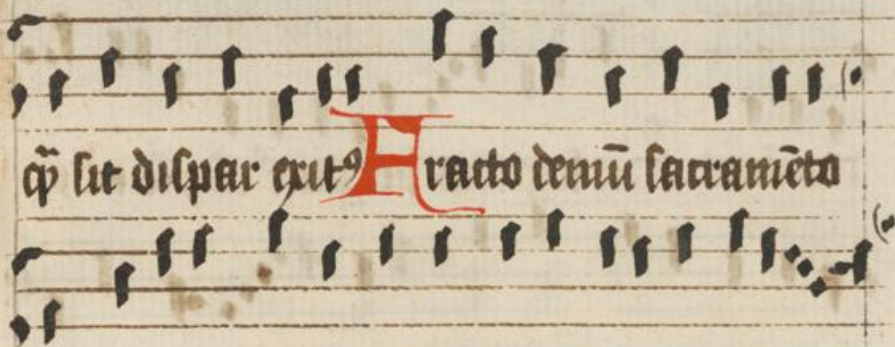 qͣ sit dispar exitꝰ Fracto demū sacramēto